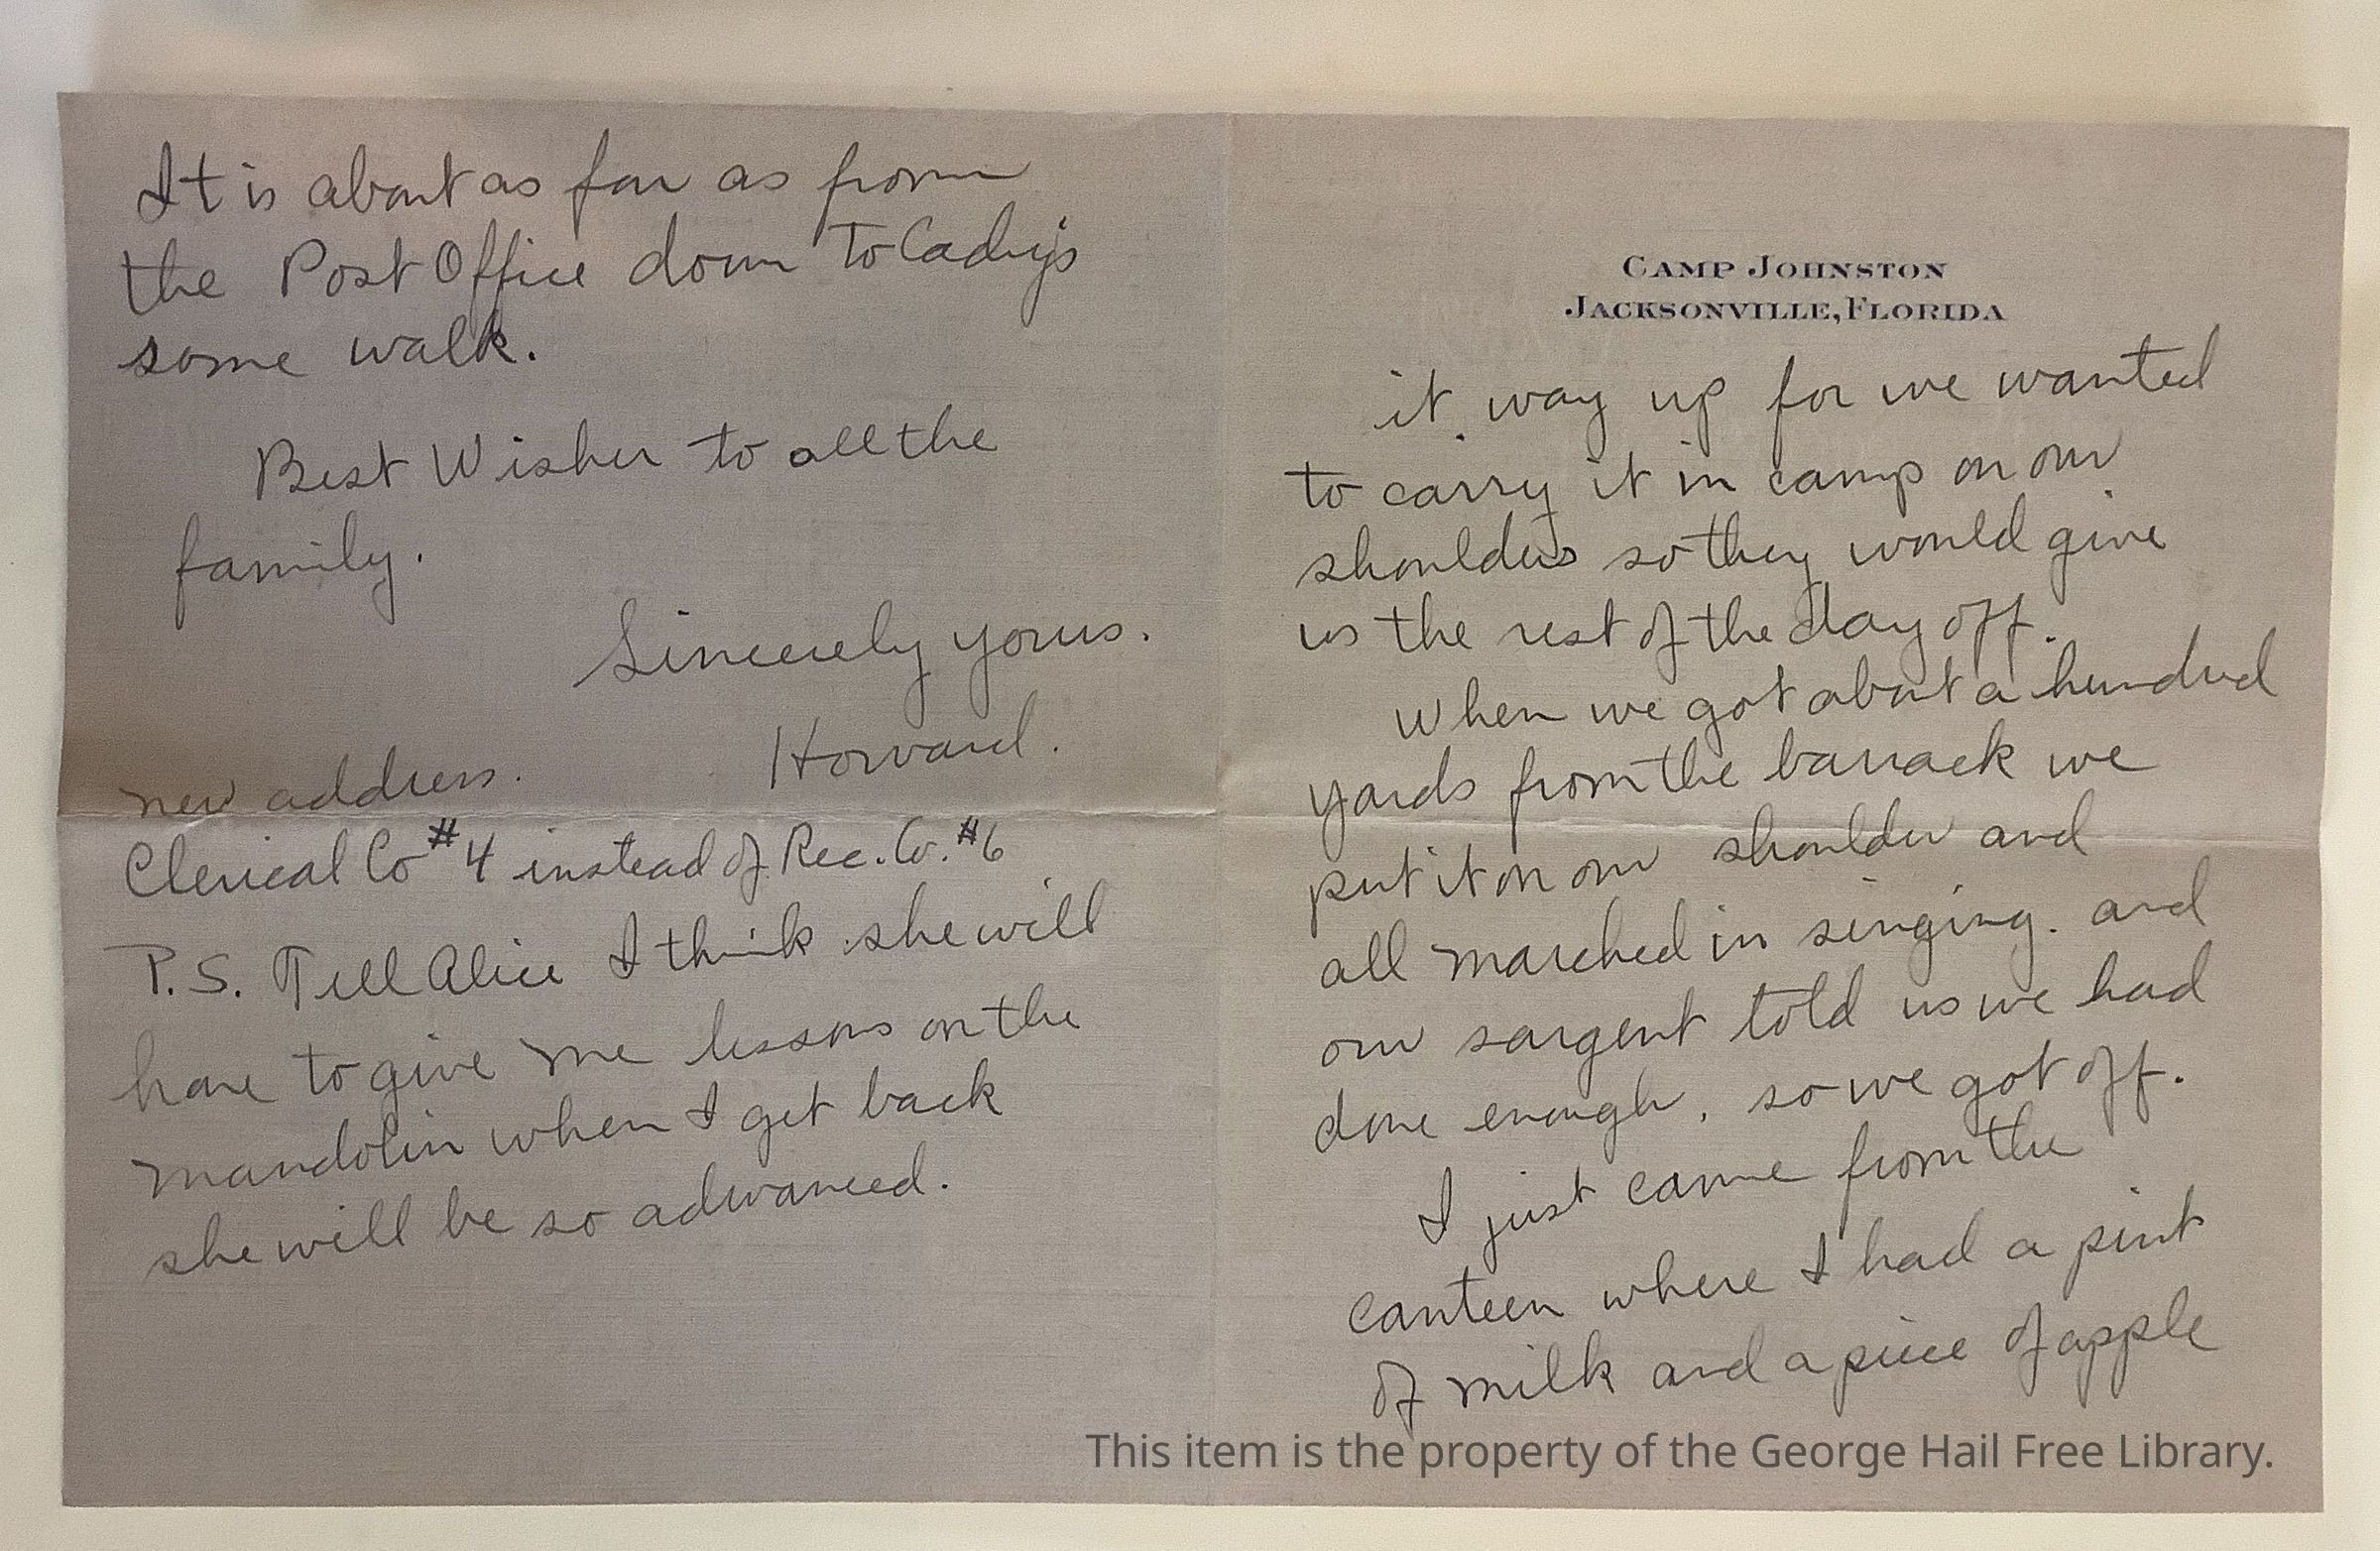 It is about as far as from
the Post Office down to Cady's
some walk.
Best Wishes to all the
family.
Sincerely yours.
Howard.
new address.
Clerical Co #4 instead of Rec. Co. #6
P.S. Tell Alice I think she will
have to give me lessons on the
mandolin when I get back
she will be so advanced.
CAMP JOHNSTON
JACKSONVILLE, FLORIDA
it way up for we wanted
to carry it in camp on our
shoulders so they would give
us the rest of the day off.
When we got about a hundred
yards from the barrack we
put it on our shoulder and
all marched in singing. and
our sargent told us we had
done enough, so we got off.
I just came from the
canteen where I had a pint
of milk and a piece of apple
This item is the property of the George Hail Free Library.